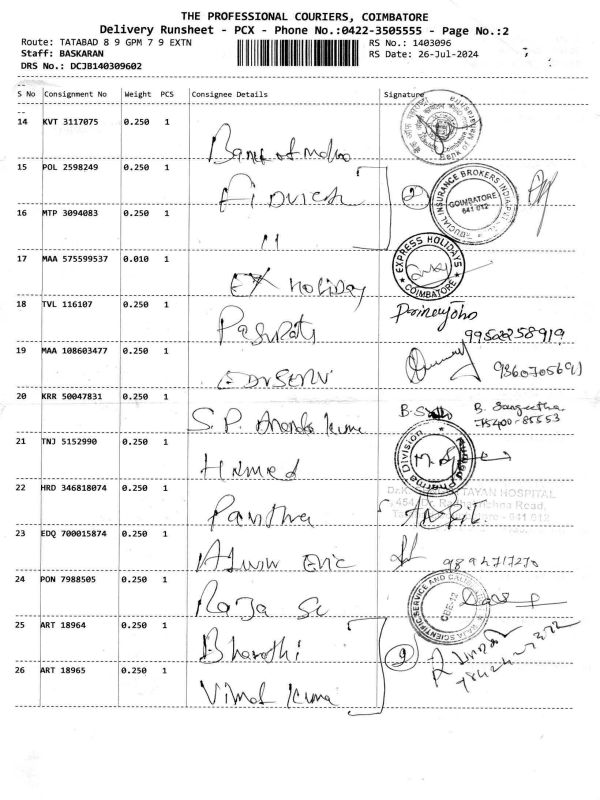 THE PROFESSIONAL COURIERS, COIMBATORE
Delivery Runsheet - PCX - Phone No.:0422-3505555 - Page No.:2
Route: TATABAD 8 9 GPM 7 9 EXTN RS No.: 1403096
Staff: BASKARAN RS Date: 26-Jul-2024
DRS No.: DCJB140309602
S No Consignment No Weight PCS Consignee Details Signature
14 KVT 3117075 0.250 1
Bank of
15 POL 2598249 0.250 1
2 INSURANCE BROKERS INDIA COIMBATORE 641 012
16 MTP 3094083 0.250 1
11
17 MAA 575599537 0.010 1
EX HOLIDAY EXPRESS HOLIDAYS COIMBATORE
18 TVL 116107 0.250 1
9950258919
19 MAA 108603477 0.250 1
9360705691
20 KRR 50047831 0.250 1
S. P. B. Sangeetha
75400-85553
21 TNJ 5152990 0.250 1
Hamed Pharma Division
22 HRD 346818074 0.250 1
HOSPITAL
23 EDQ 700015874 0.250 1
Alwin Eric
24 PON 7988505 0.250 1
Raja Sc RAJA SCIENTIFIC SERVICE AND CBE-12
25 ART 18964 0.250 1
Bharathi 2
26 ART 18965 0.250 1
Vimal Kuma